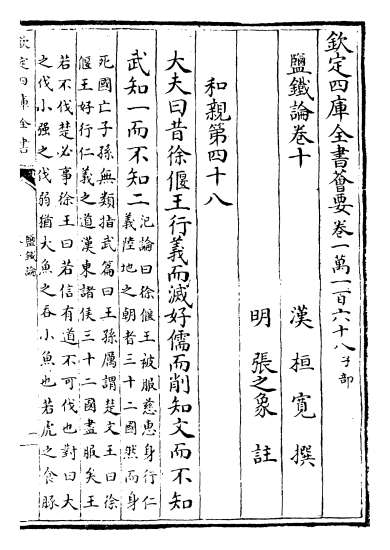 欽定四庫全書薈要卷一萬一百六十八子部
鹽鐵論卷十
漢桓寬撰
明張之象註
和親第四十八
大夫曰昔徐偃王行義而滅好儒而削知文而不知
武知一而不知二
氾論曰徐偃王被服慈惠身行仁
義陸地之朝者三十二國然而身
死國亡子孫無類指武篇曰王孫厲謂楚文王曰徐
偃王好行仁義之道漢東諸侯三十二國盡服矣王
若不伐楚必事徐王曰若信有道不可伐也對曰大
之伐小强之伐弱猶大魚之吞小魚也若虎之食豚
欽定四庫全書
鹽鐵論
一